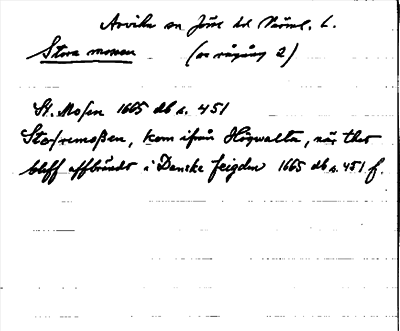 Arvika sn Jösse hd Värml. L.
Stora mossen (se rågång 2)
St. Mosen 1665 db s. 451
Storremoßen, kom ifrån Högwalta, när ther
bleff affbrändt i Danske feigden 1665 db s. 451 f.